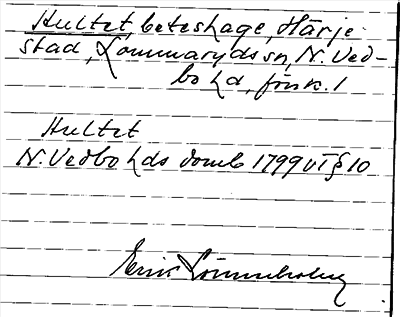 Hultet, beteshage, Härje-
stad, Lommaryds sn, N. Ved-
bo hd, Jönk. l
Hultet
N. Vedbo hds domb 1799 VT § 10
Eric